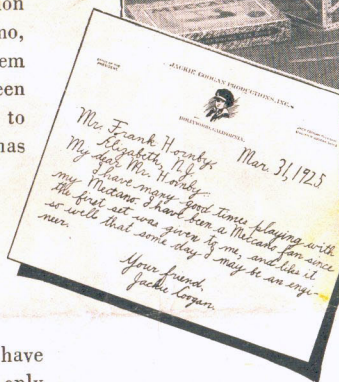 on
no,
em
een
to
has
JACKIE COOGAN PRODUCTIONS, INC.
OFFICE OF THE
PRESIDENT
HOLLYWOOD, CALIFORNIA
Mar. 31, 1925
Mr. Frank Hornby,
Elizabeth, N.J.
My dear Mr. Hornby:
I have many good times playing with
my Meccano. I have been a Meccano fan since
the first set was given to me, and like it
so well that some day I may be an engi-
neer.
Your friend,
Jackie Coogan.
have
only